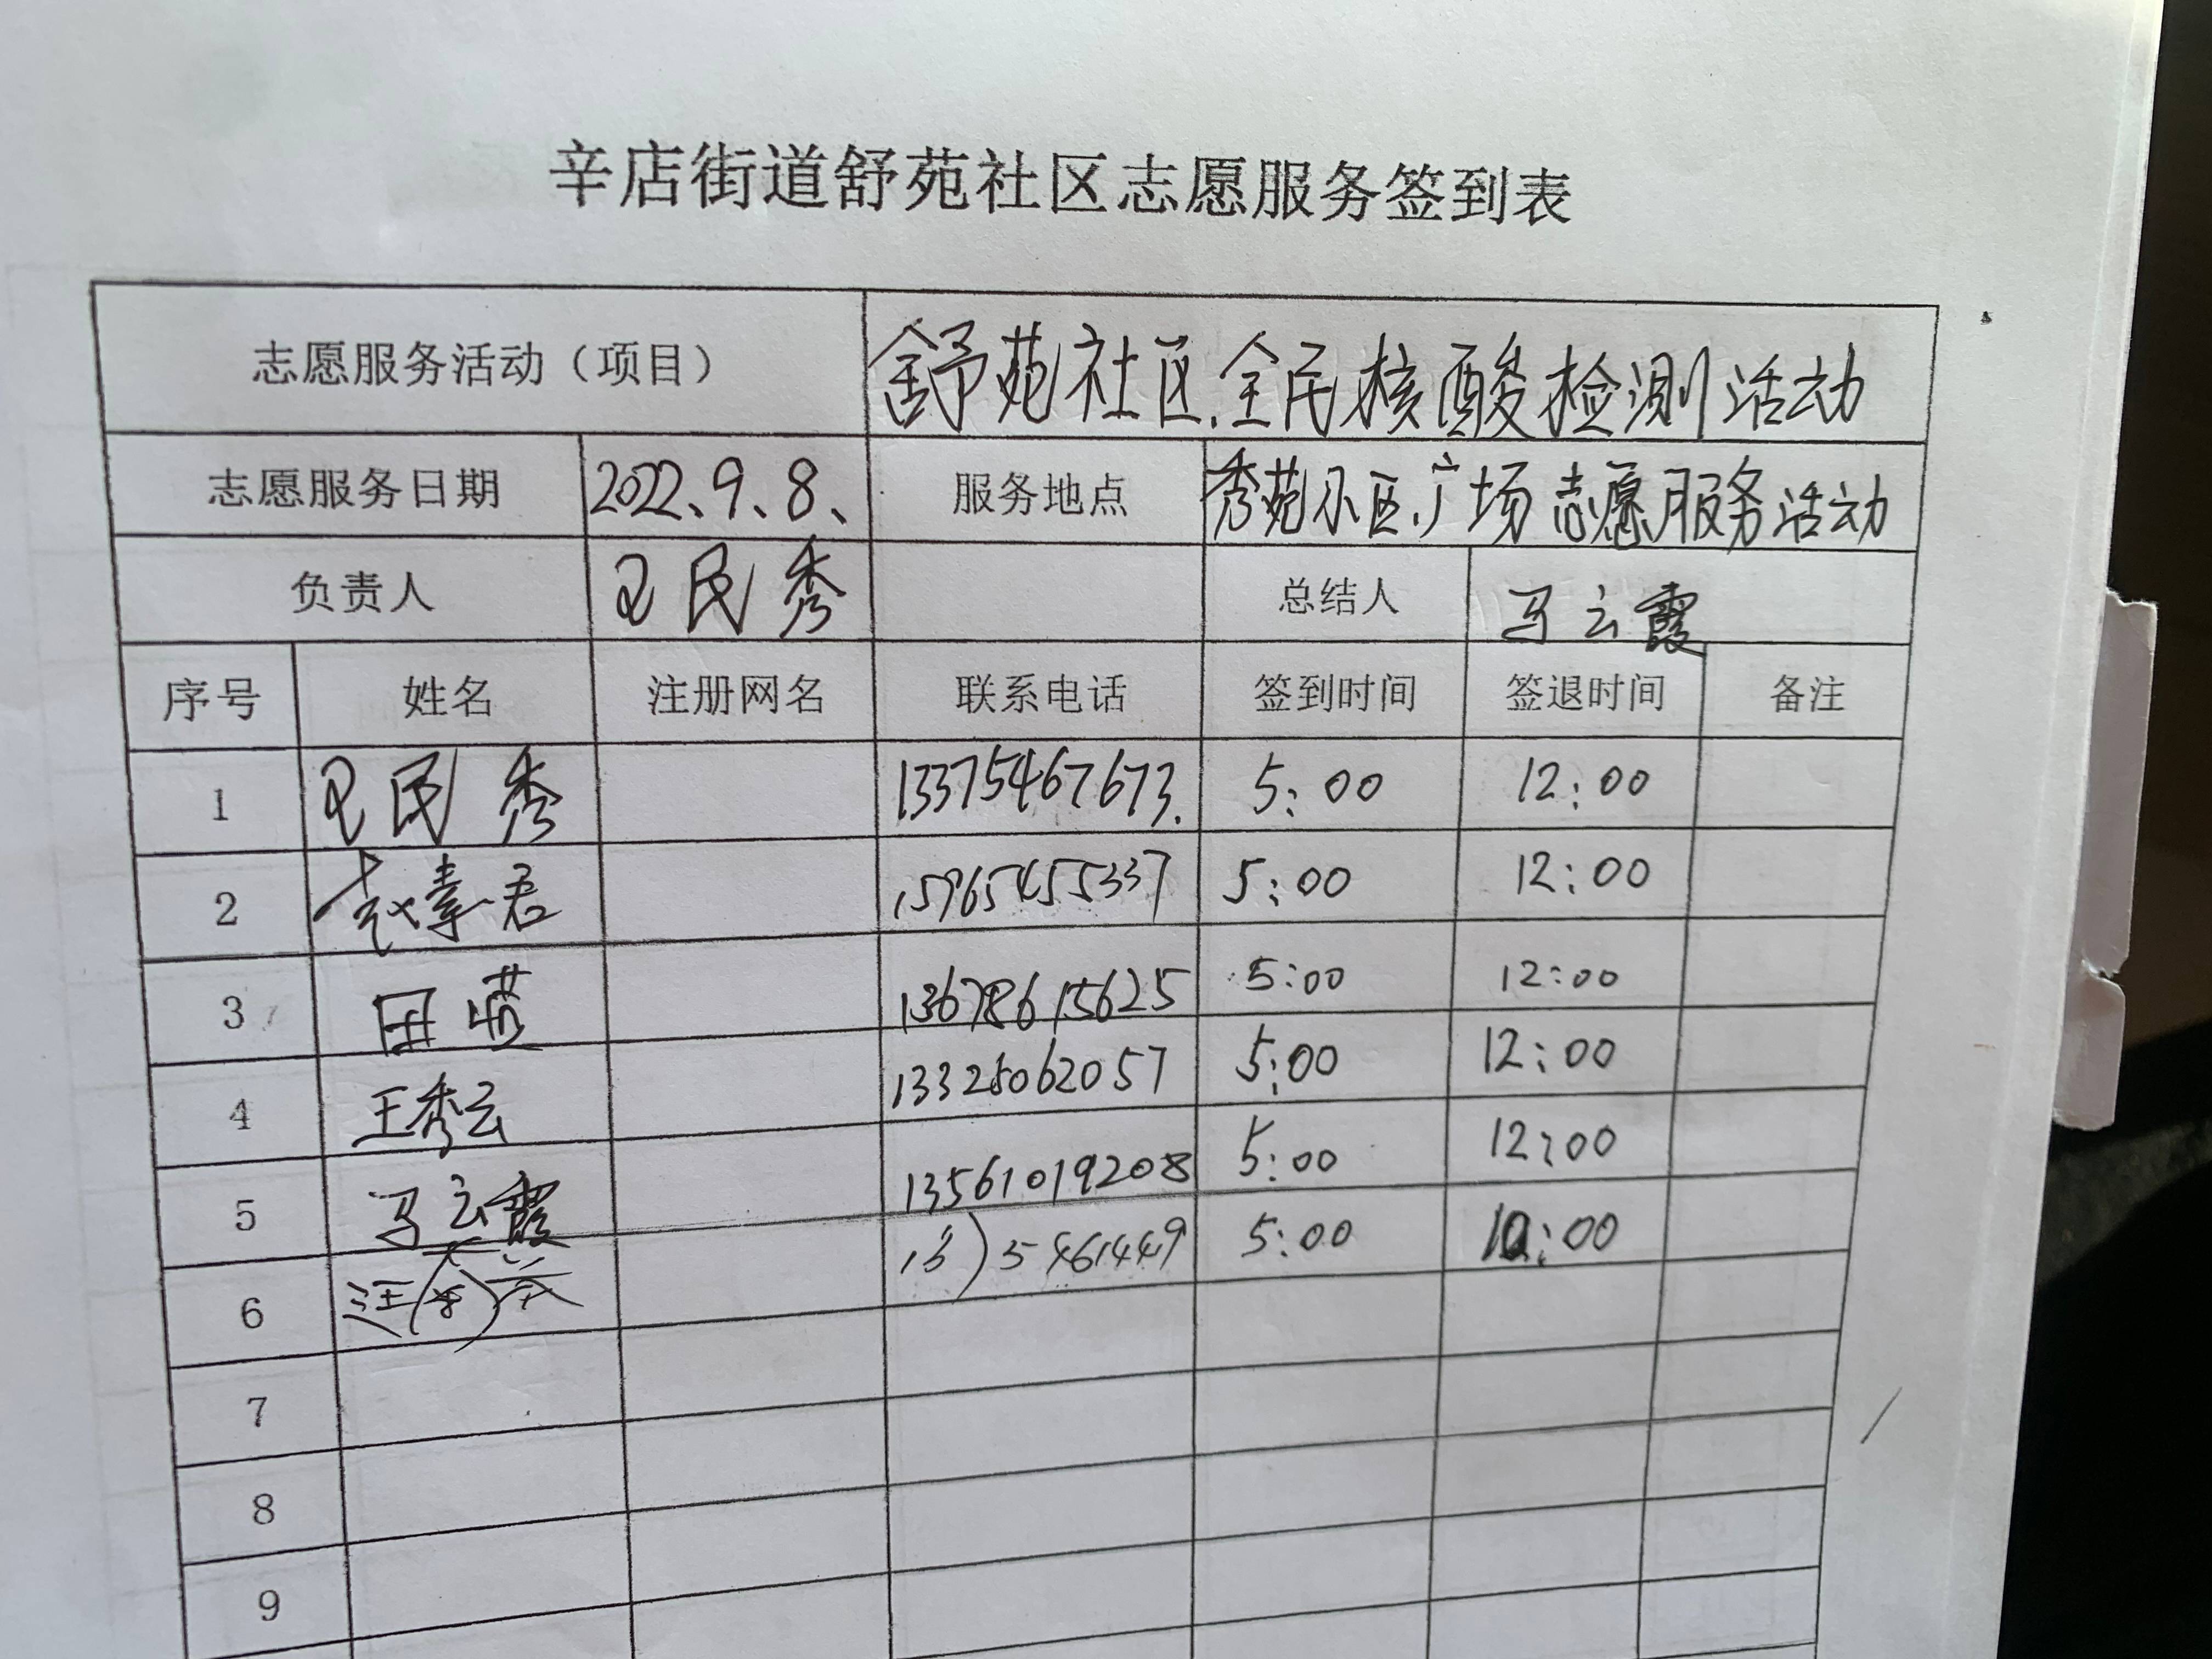 辛店街道舒苑社区志愿服务签到表
志愿服务活动（项目） 舒苑社区.全民核酸检测活动
志愿服务日期 2022、9、8、 服务地点 秀苑小区.广场志愿服务活动
负责人 王民秀 总结人 马云霞
序号 姓名 注册网名 联系电话 签到时间 签退时间 备注
1 王民秀 13375467673. 5:00 12:00
2 赵素君 15965455337 5:00 12:00
3 田英 13678615625 5:00 12:00
4 王秀云 13325062057 5:00 12:00
5 马云霞 13561019208 5:00 12:00
6 5:00
7
8
9